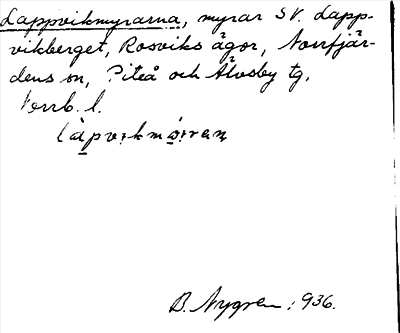 Lappvikmyrarna, myrar SV. Lapp-
vikberget, Rosviks ägor, Norrfjär-
dens sn, Piteå och Älvsby tg.
Norrb. l.
B. Nygren 1936.